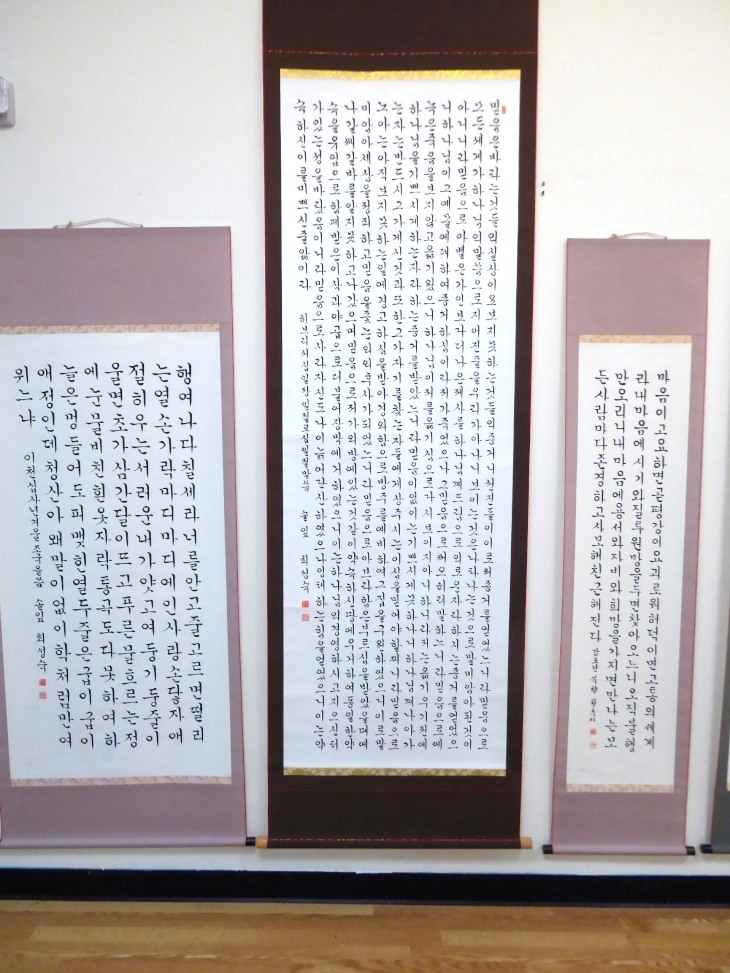 마음이고요하면곧평강이요괴로워해덕이면고통의세계
라내마음에시기와질투원망을두면찾아오느니오직불행
만오리니내마음에용서와자비와희망을가지면만나는모
든사람마다존경하고사모해친근해진다
믿음은바라는것들의실상이요보지못하는것들의증거니선진들이이로써증거를얻었느니라믿음으로
모든세계가하나님의말씀으로지어진줄을우리가아나니보이는것은나타난것으로말미암아된것이
아니니라믿음으로아벨은가인보다더나은제사를하나님께드림으로의로운자라하시는증거를얻었으
니하나님이그예물에대하여증거하심이라저가죽었으나그믿음으로써오히려말하느니라믿음으로에
녹은죽음을보지않고옮기웠으니하나님이저를옮기심으로다시보이지아니하니라저는옮기우기전에
하나님을기쁘시게하는자라하는증거를받았느니라믿음이없이는기쁘시게못하나니하나님께나아가
는자는반드시그가계신것과또한그가자기를찾는자들에게상주시는이심을믿어야할찌니라믿음으로
노아는아직보지못하는일에경고하심을받아경외함으로방주를예비하여그집을구원하였으니이로말
미암아세상을정죄하고믿음을좇는의의후사가되었느니라믿음으로아브라함은부르심을받았을때에
나갈쌔갈바를알지못하고나갔으며믿음으로저가외방에있는것같이약속하신땅에우거하여동일한약
속을유업으로함께받은이삭과야곱으로더불어장막에거하였으니이는하나님의경영하시고지으실터
가있는성을바랐음이니라믿음으로사라자신도나이늙어단산하였으나잉태하는힘을얻었으니이는약
속하신이를미쁘신줄앎이라 히브리서십일장 최성숙
행여나다칠세라너를안고줄고르면떨리
는열손가락마디마디에인사랑손닿자애
절히우는서러운내가얏고여둥기둥줄이
울면초가삼간달이뜨고푸른물흐르는정
에눈물비친흰옷자락통곡도다못하여하
늘은멍들어도피맺힌열두줄은굽이굽이
애정인데청산아왜말이없이학처럼만여
위느냐 이천십사년 최성숙